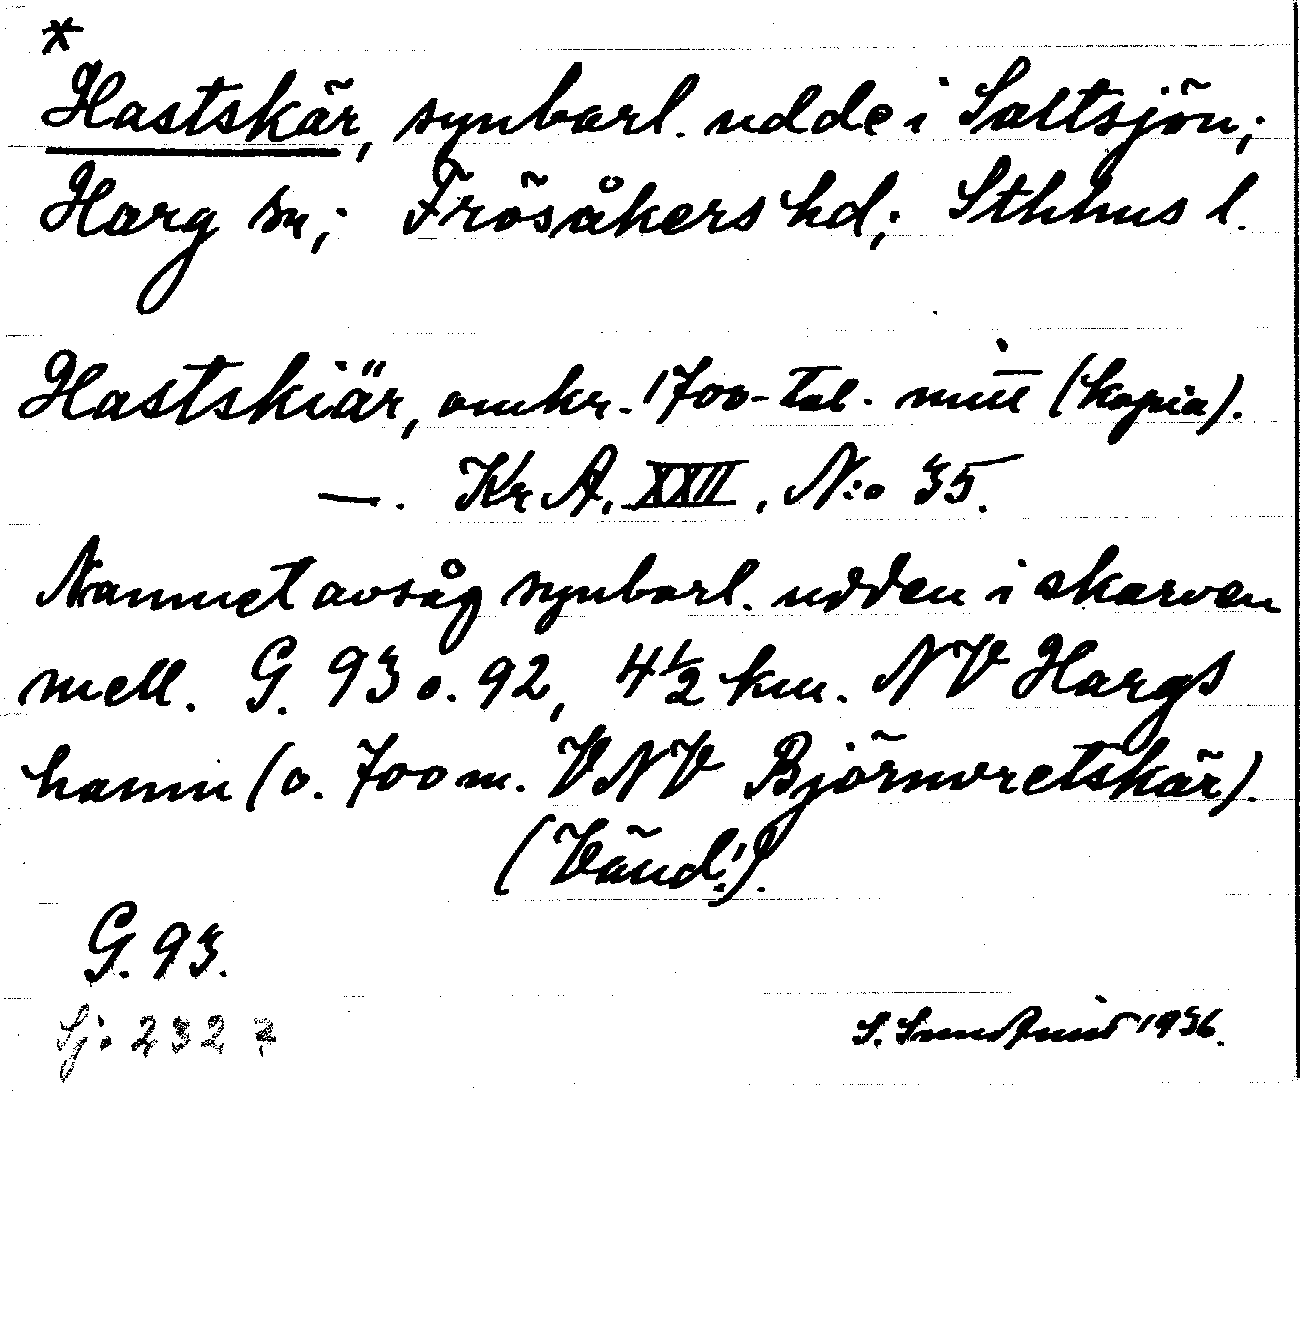 *
Hastskär, synbarl. udde i Saltsjön;
Harg sn; Frösåkers hd; Sthlms l.
Hastskiär, omkr. 1700-tal. mitt (kopia).
—. Kr A. XXII, N:o 35.
Namnet avsåg synbarl. udden i skarven
mell. G. 93 o. 92, 4½ km. NV Hargs
hamn (o. 700 m. VNV Björnvretskär).
(Vänd!).
G. 93.
Sj. 232
1936.